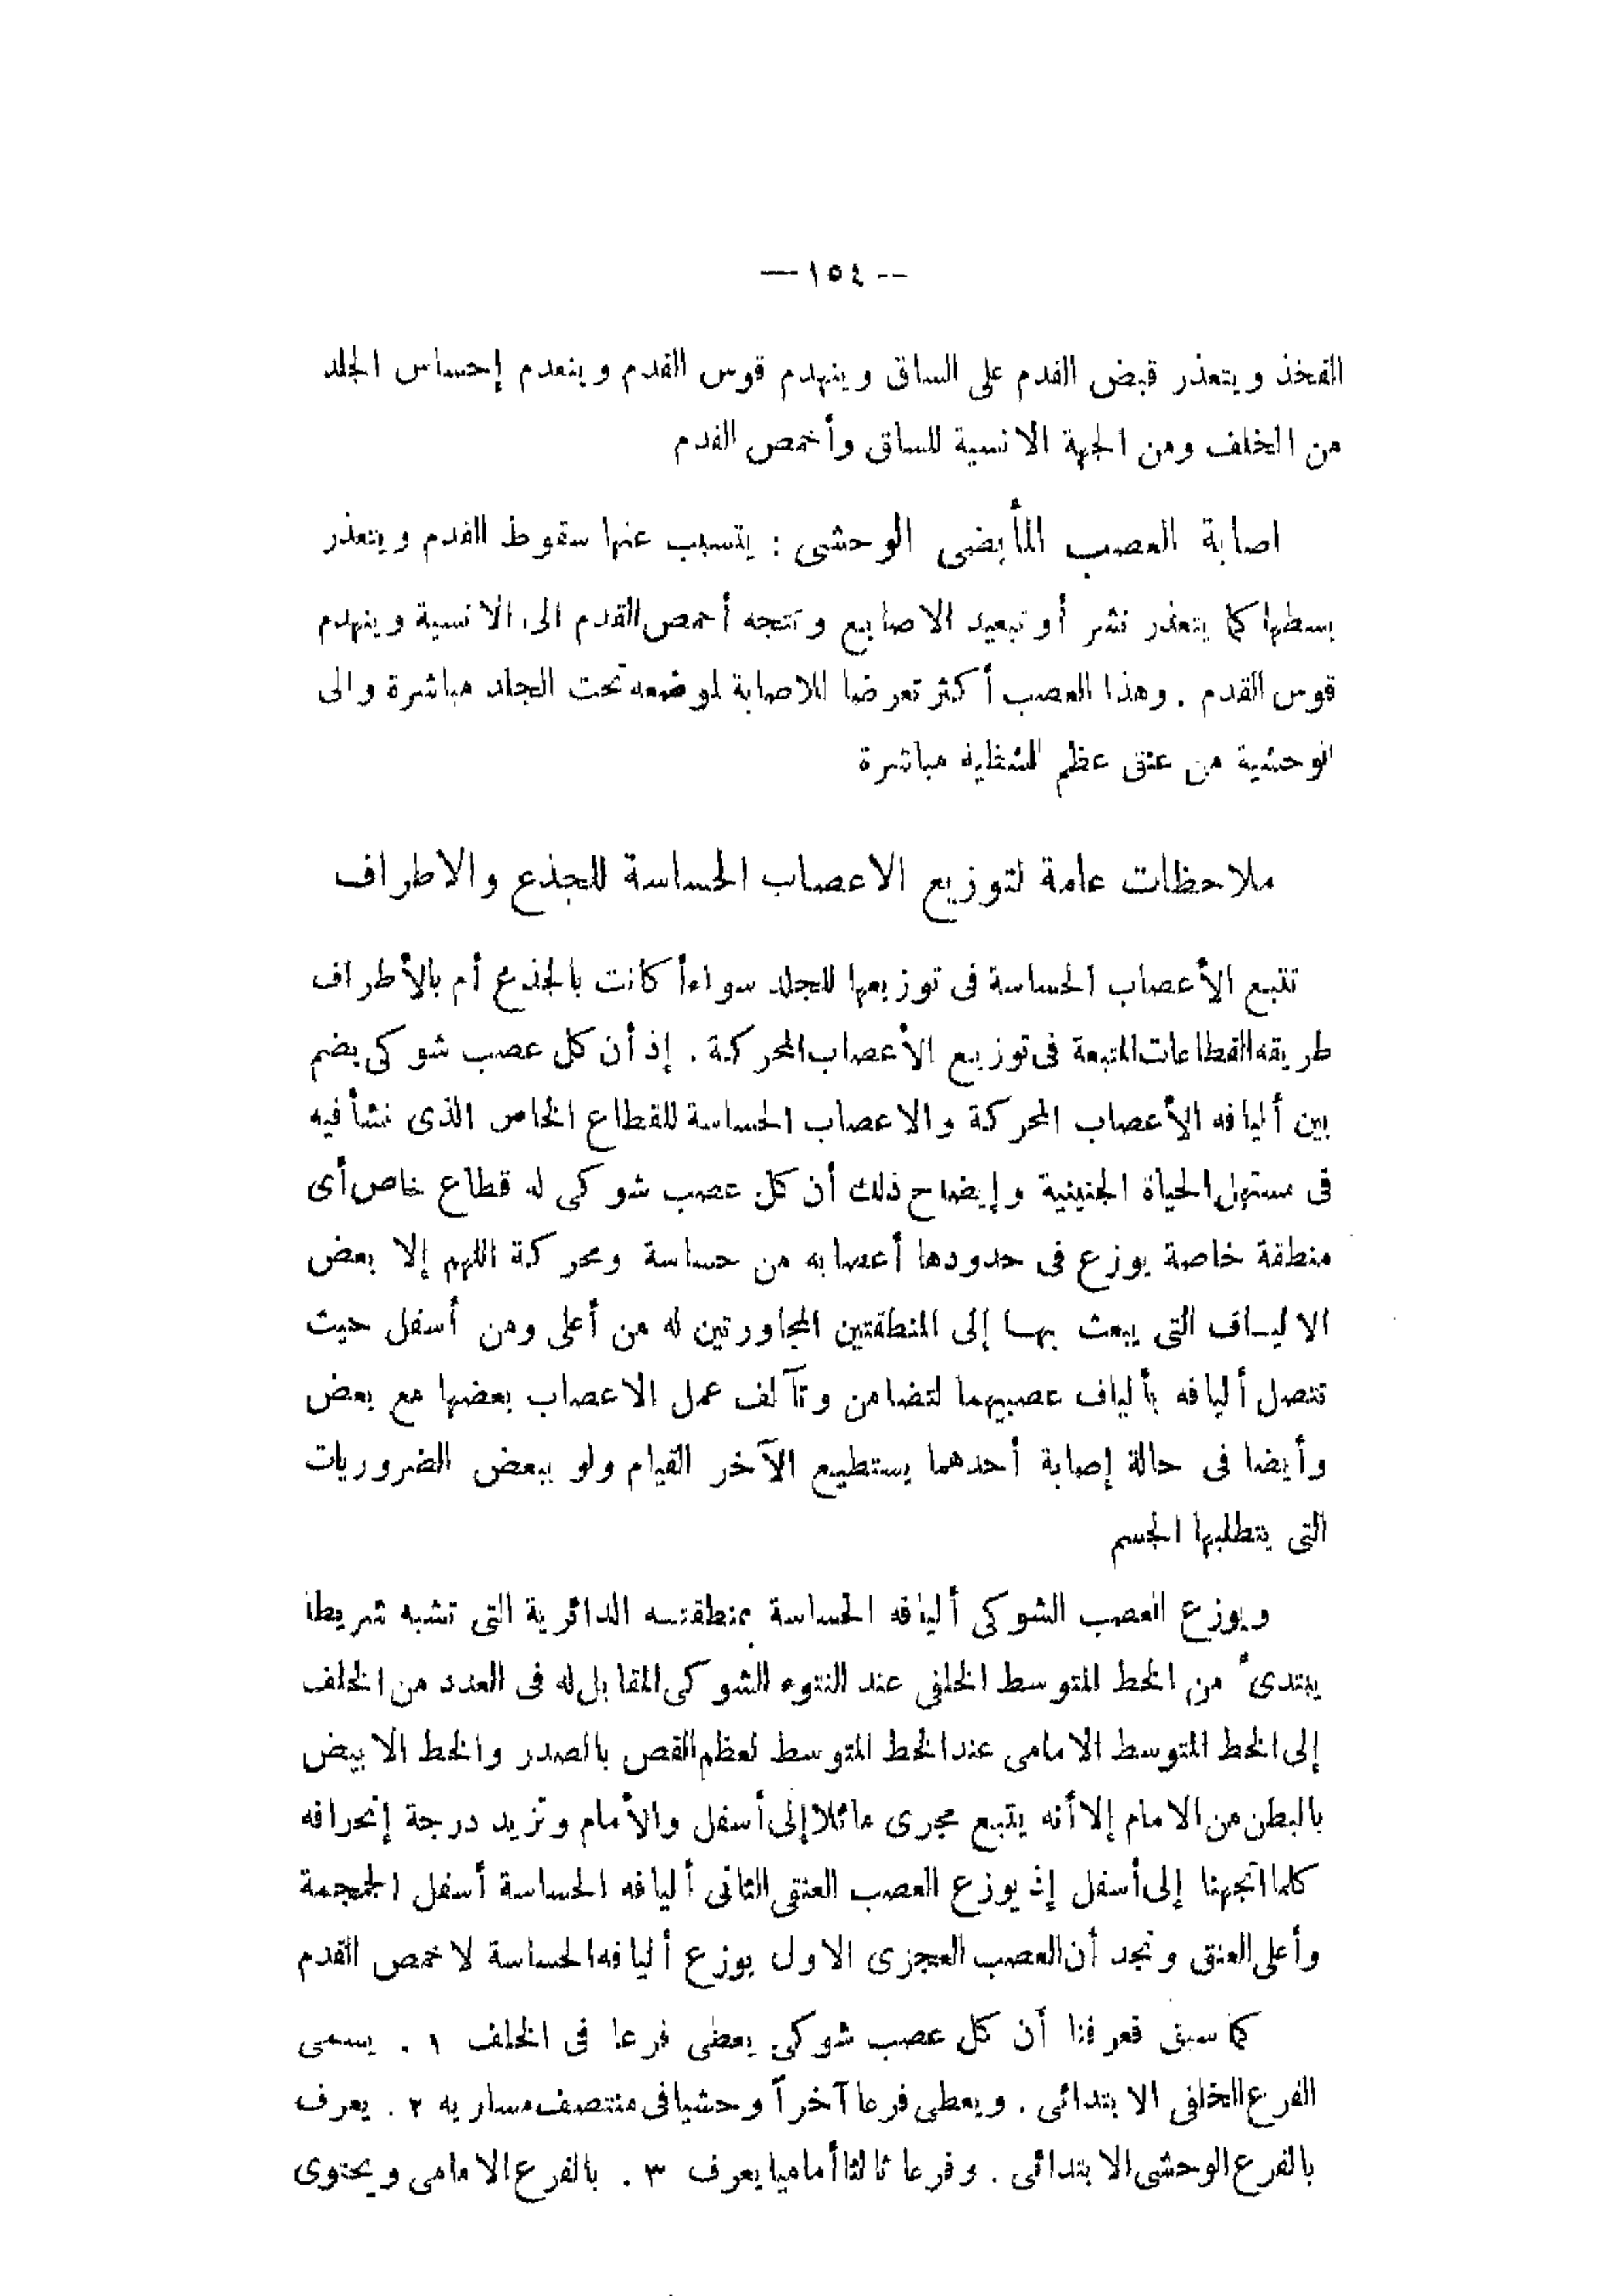 — ١٥٤ —
الفخذ ويتعذر قبض القدم على الساق وينهدم قوس القدم وينعدم إحساس الجلد
من الخلف ومن الجهة الانسية للساق وأخمص القدم
اصابة العصب المأبضى الوحشى : يتسبب عنها سقوط القدم ويتعذر
بسطها كما يتعذر نشر أو تبعيد الاصابع وتتجه أخمص القدم الى الانسية وينهدم
قوس القدم . وهذا العصب أكثر تعرضا للاصابة لموضعه تحت الجلد مباشرة والى
الوحشية من عنق عظم الشظية مباشرة
ملاحظات عامة لتوزيع الاعصاب الحساسة للجذع والاطراف
تتبع الأعصاب الحساسة فى توزيعها للجلد سواءأ كانت بالجذع أم بالأطراف
طريقه القطاعات المتبعة فى توزيع الأعصاب المحركة . إذ أن كل عصب شوكى يضم
بين أليافه الأعصاب المحركة والاعصاب الحساسة للقطاع الخاص الذى نشأ فيه
فى مستهل الحياة الجنينية وإيضاح ذلك أن كل عصب شوكى له قطاع خاص أى
منطقة خاصة يوزع فى حدودها أعصابه من حساسة ومحركة اللهم إلا بعض
الاليـاف التى يبعث بهـا إلى المنطقتين المجاورتين له من أعلى ومن أسفل حيث
تتصل أليافه بألياف عصبيهما لتضامن وتآلف عمل الاعصاب بعضها مع بعض
وأيضا فى حالة إصابة أحدهما يستطيع الآخر القيام ولو ببعض الضروريات
التى يتطلبها الجسم
ويوزع العصب الشوكى أليافه الحساسة بمنطقتـه الدائرية التى تشبه شريطا
يبتدىء من الخط المتوسط الخلفى عند النتوء الشوكى المقابل له فى العدد من الخلف
إلى الخط المتوسط الامامى عند الخط المتوسط لعظم القص بالصدر والخط الابيض
بالبطن من الامام إلا أنه يتبع مجرى مائلا إلى أسفل والأمام وتزيد درجة إنحرافه
كلما اتجهنا إلى أسفل إذ يوزع العصب العنقى الثانى أليافه الحساسة أسفل الجمجمة
وأعلى العنق ونجد أن العصب العجزى الاول يوزع أليافه الحساسة لاخمص القدم
كما سبق فعرفنا أن كل عصب شوكى يعطى فرعا فى الخلف ١ . يسمى
الفرع الخلفى الابتدائى . ويعطى فرعا آخراً وحشيا فى منتصف مساريه ٢ . يعرف
بالفرع الوحشى الابتدائى . وفرعا ثالثا أماميا يعرف ٣ . بالفرع الامامى ويحتوى